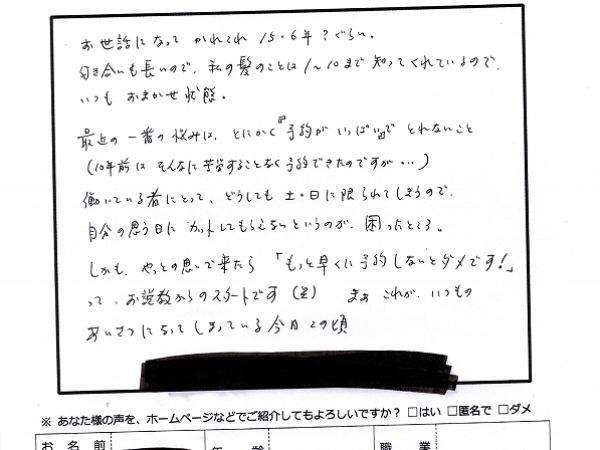 お世話になって かれこれ 15・6年？ぐらい。
付き合いも長いので、私の髪のことは1～10まで知ってくれているので、
いつも おまかせ状態。
最近の一番の悩みは、とにかく『予約がいっぱい』で とれないこと
(10年前は そんなに苦労することなく予約できたのですが…)
働いている者にとって、どうしても 土・日に限られてしまうので、
自分の思う日に カットしてもらえないというのが、困ったところ。
しかも、やっとの思いで来たら 「もっと早くに予約しないとダメです!」
って、お説教からのスタートです (笑) まぁ これが、いつもの
あいさつになってしまっている今日この頃
※ あなた様の声を、ホームページなどでご紹介してもよろしいですか？ □はい □匿名で □ダメ
お 名 前 年 齢 職 業